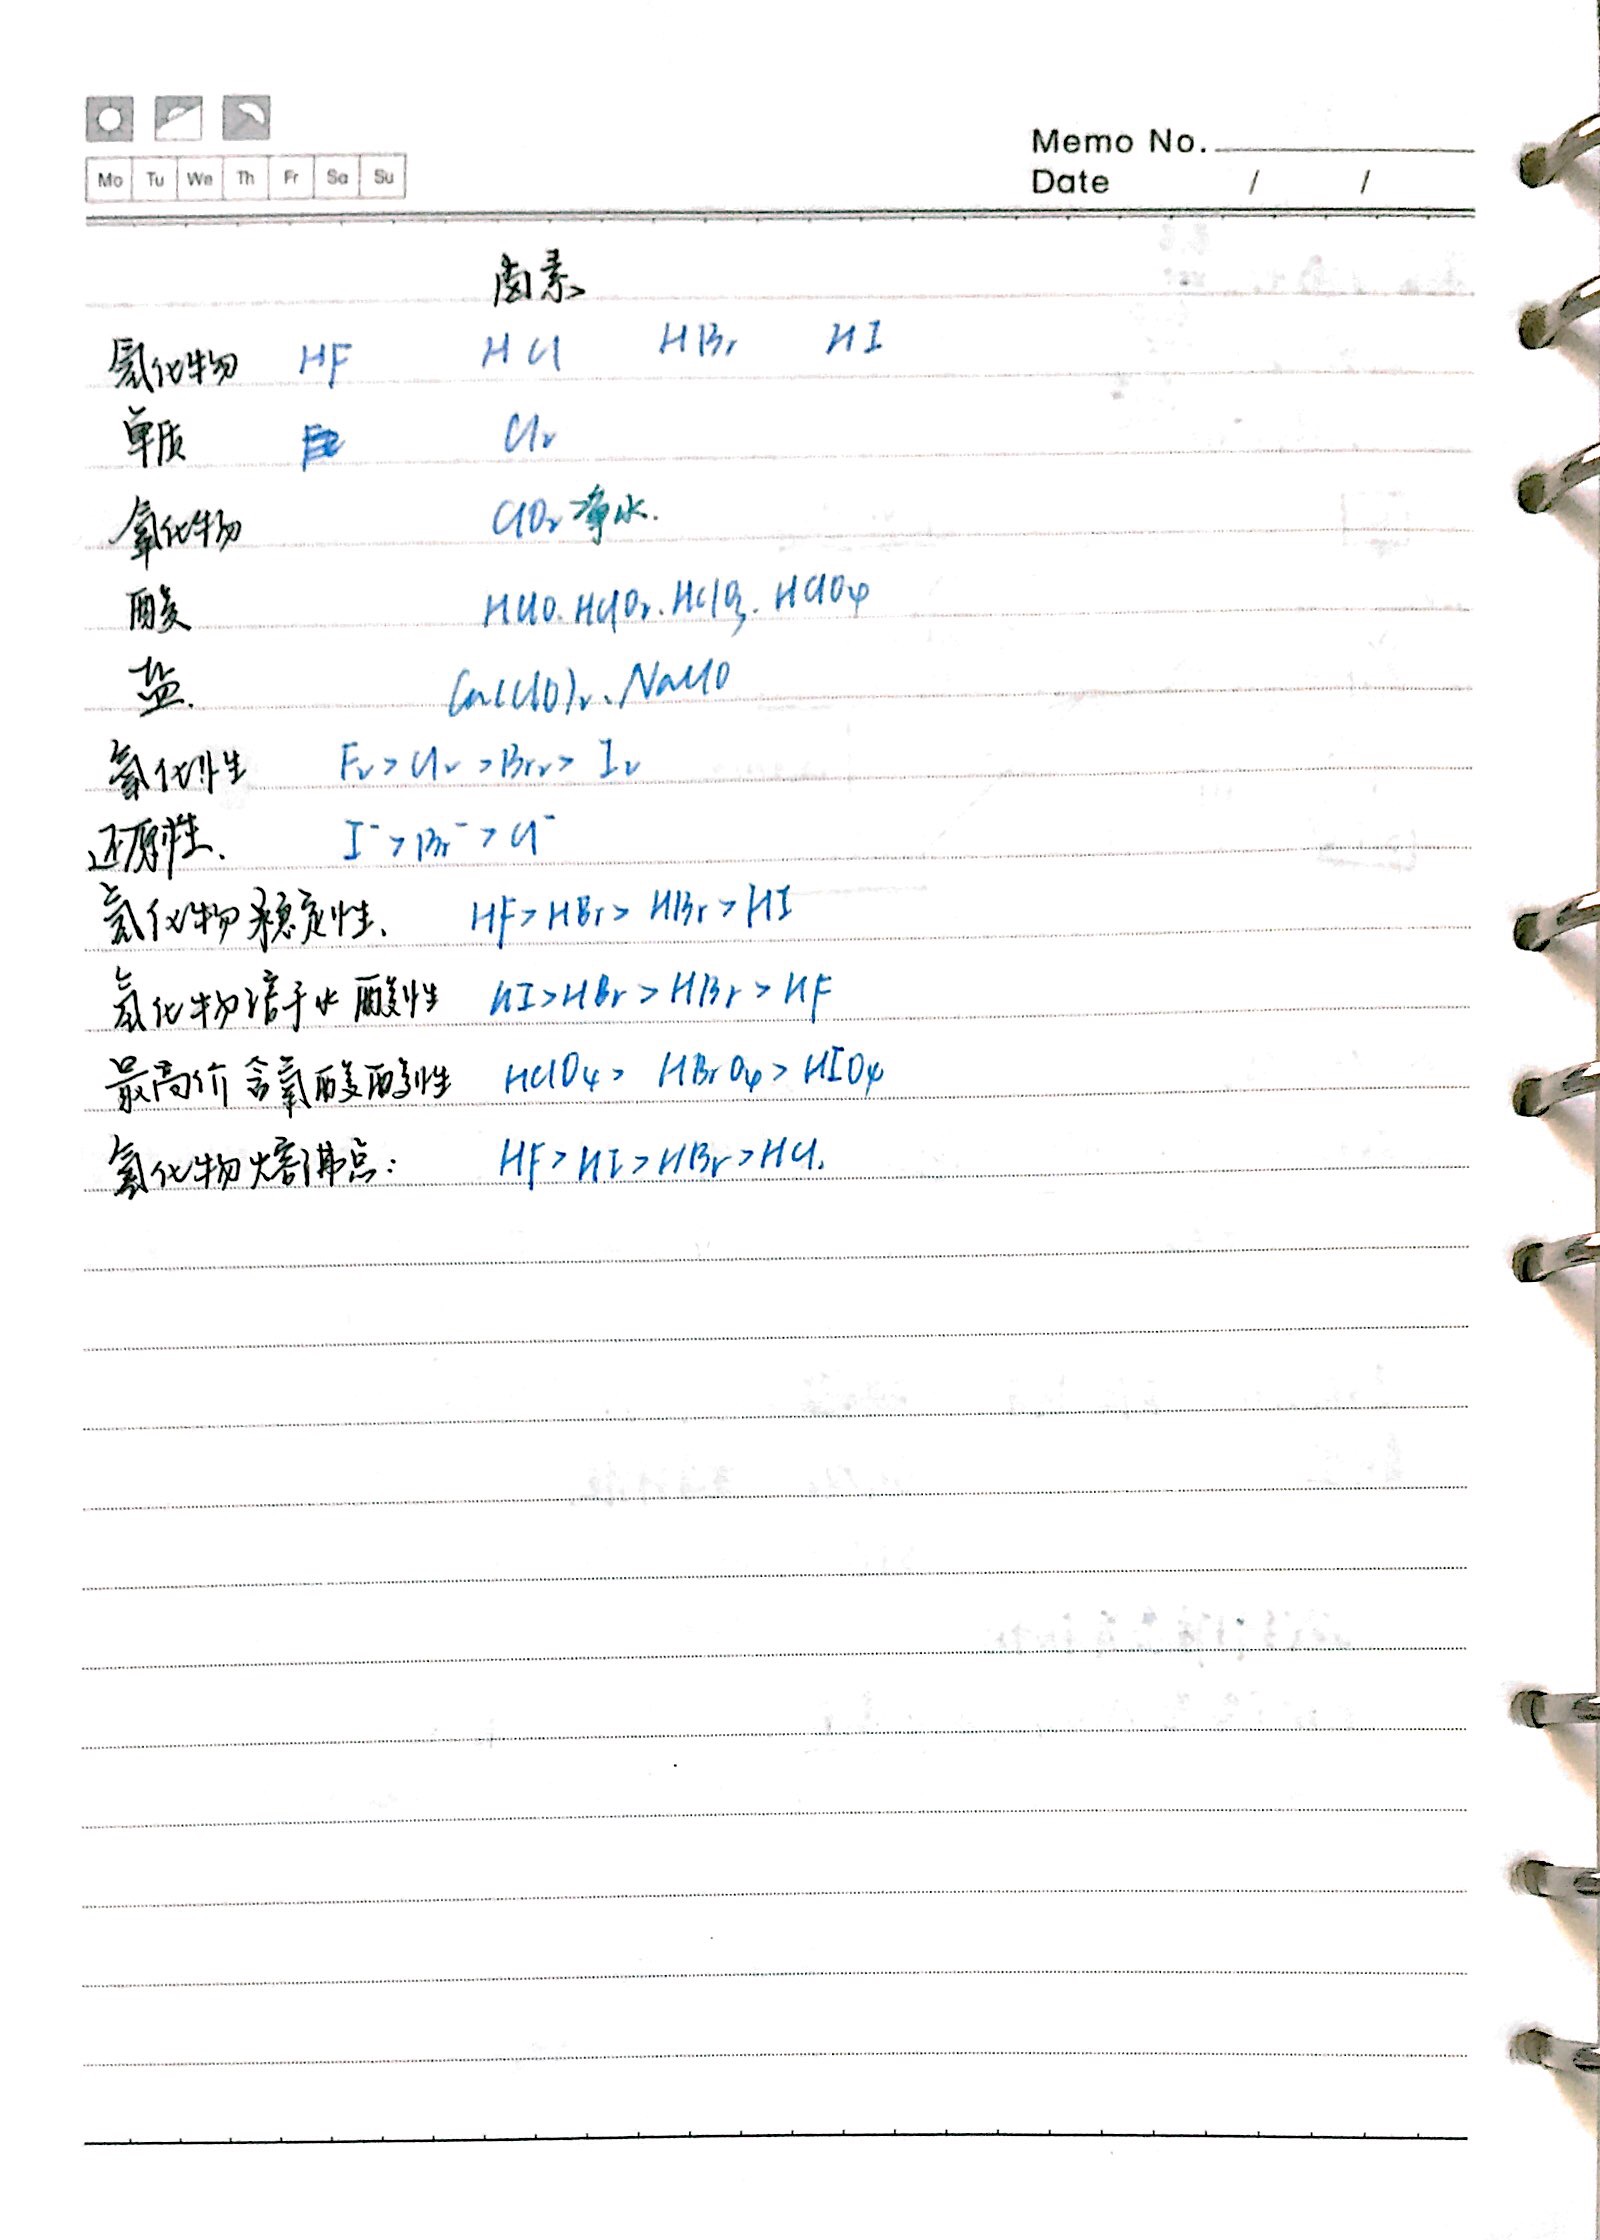 Mo Tu We Th Fr Sa Su
Memo No.
Date / /
卤素
氢化物 HF HCl HBr HI
单质 Cl₂
氧化物 ClO₂ 净水.
酸 HClO. HClO₂. HClO₃. HClO₄
盐. Ca(ClO)₂. NaClO
氧化性 F₂ > Cl₂ > Br₂ > I₂
还原性. I⁻ > Br⁻ > Cl⁻
氢化物稳定性. HF > HBr > HBr > HI
氢化物溶于水酸性 HI > HBr > HBr > HF
最高价含氧酸酸性 HClO₄ > HBrO₄ > HIO₄
氢化物熔沸点: HF > HI > HBr > HCl.